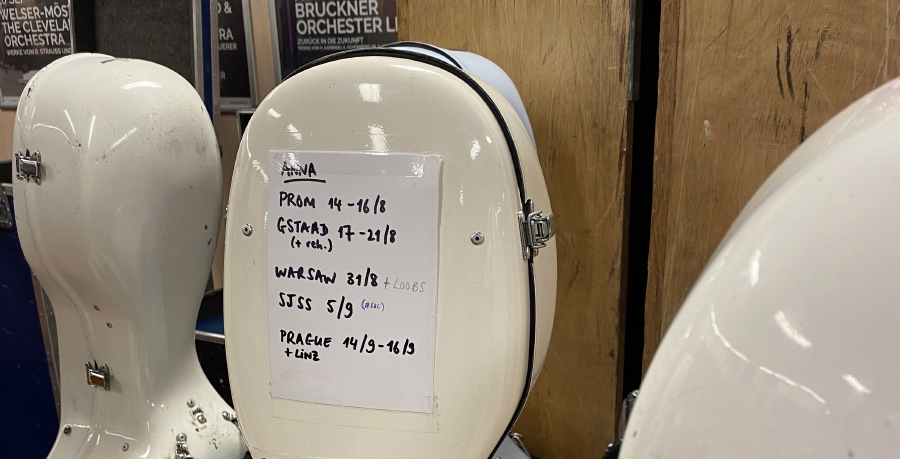 WELSER-MÖS
THE CLEVELA
ORCHESTRA
BRUCKNER
ORCHESTER LI
ZURÜCK IN DIE ZUKUNFT
ANNA
PROM 14-16/8
GSTAAD 17-21/8
(+ reh.)
WARSAW 31/8 + LOOBS
SJSS 5/9
PRAGUE 14/9-16/9
+ LINZ